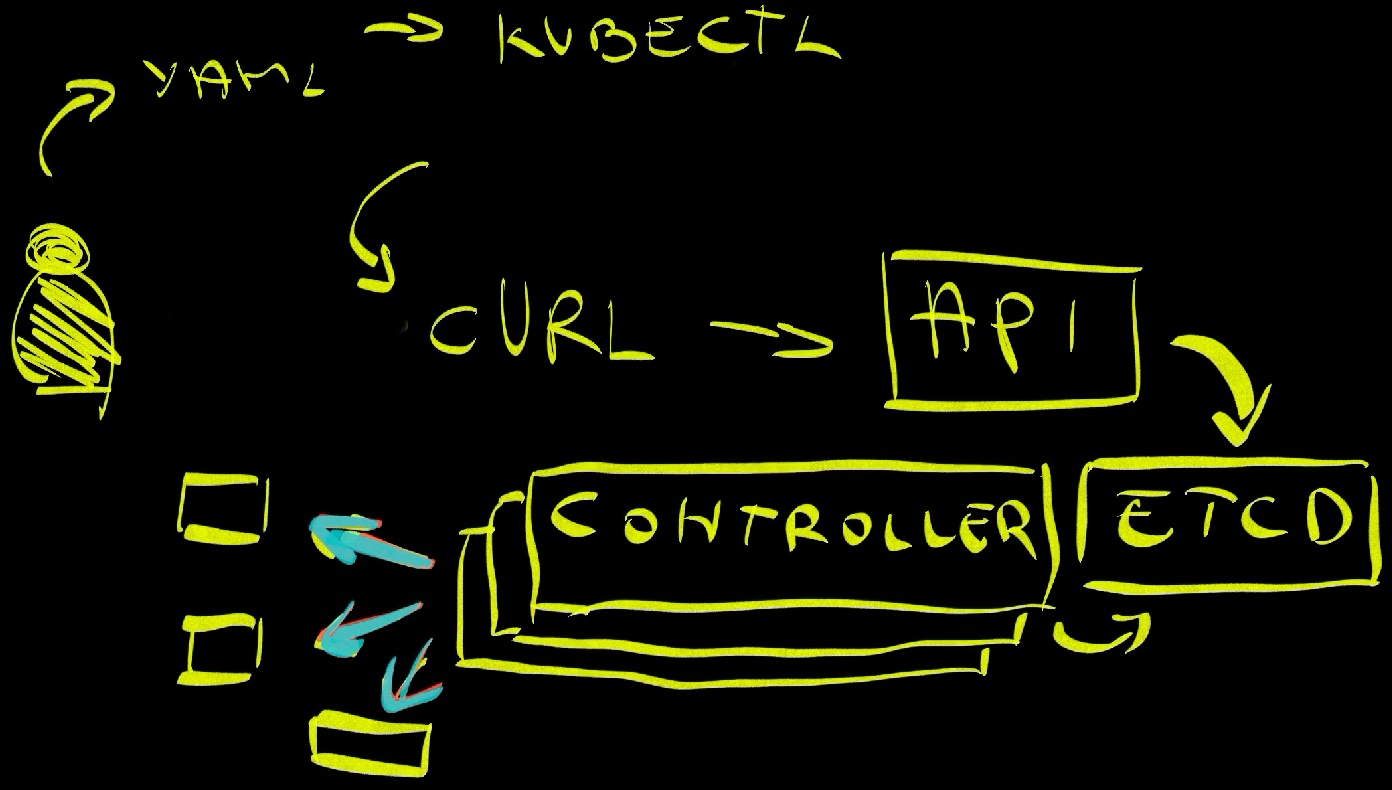 YAML
KUBECTL
CURL
API
CONTROLLER
ETCD